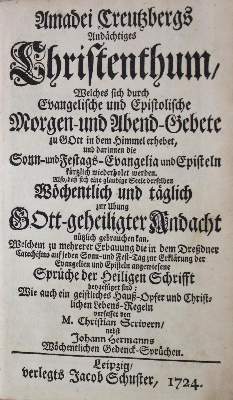 Amadei Creutzbergs
Andächtiges
Christenthum,
Welches sich durch
Evangelische und Epistolische
Morgen-und Abend-Gebete
zu GOtt in dem Himmel erhebet,
und darinnen die
Sonn-und Festags-Evangelia und Episteln
kürtzlich wiederholet werden.
Also, daß sich eine glaubige Seele derselben
Wöchentlich und täglich
zur Ubung
GOtt-geheiligter Andacht
nützlich gebrauchen kan.
Welchem zu mehrerer Erbauung die in dem Dreßdner
Catechismo auf jeden Sonn-und Fest-Tag zur Erklärung der
Evangelien und Episteln angewiesene
Sprüche der Heiligen Schrifft
beygefüget sind;
Wie auch ein geistliches Hauß-Opfer und Christ-
lichen Lebens-Regeln
verfasset von
M. Christian Scrivern,
nebst
Johann Hermanns
Wöchentlichen Gedenck-Sprüchen.
Leipzig,
verlegts Jacob Schuster, 1724.